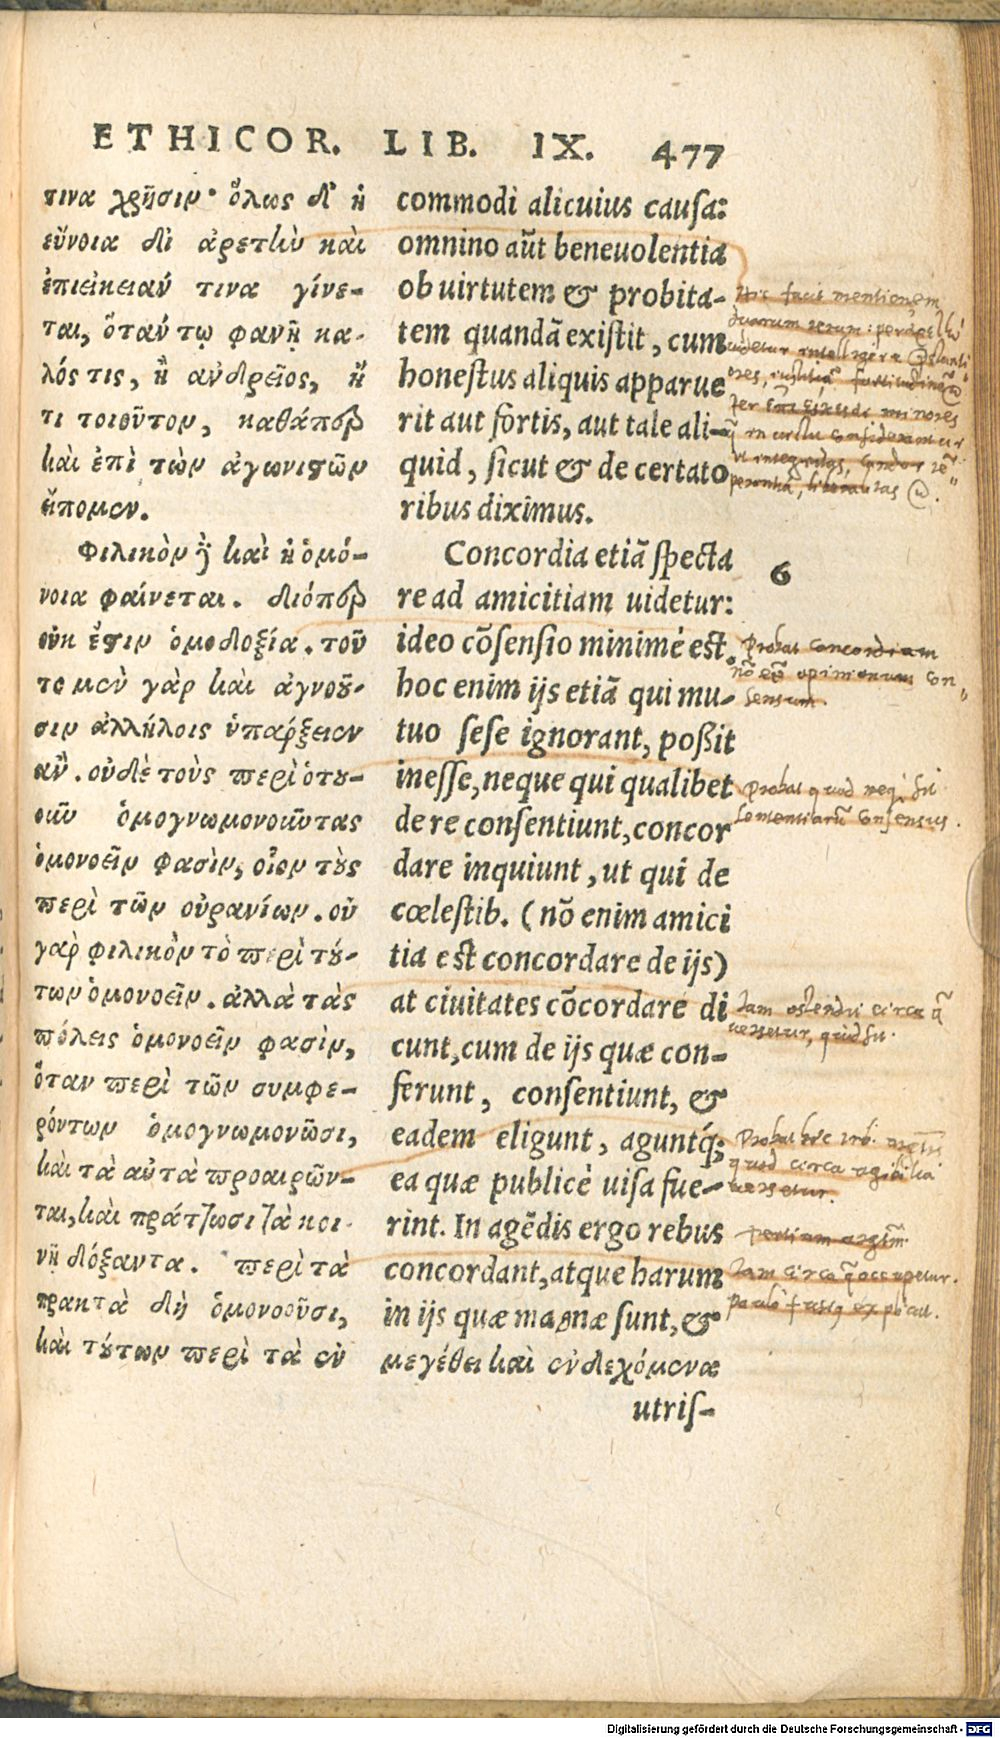 ETHICOR. LIB. IX. 477
τινα χρῆσιν· ὅλως δ' ἡ
εὔνοια δι' ἀρετὴν καὶ
ἐπιείκειάν τινα γίνε-
ται, ὅταν τῳ φανῇ κα-
λός τις, ἢ ἀνδρεῖος, ἤ
τι τοιοῦτον, καθάπερ
καὶ ἐπὶ τῶν ἀγωνιστῶν
εἴπομεν.
Φιλικὸν δὲ καὶ ἡ ὁμό-
νοια φαίνεται. διόπερ
οὐκ ἔστιν ὁμοδοξία. τοῦ
το μὲν γὰρ καὶ ἀγνοοῦ-
σιν ἀλλήλοις ὑπάρξειεν
ἄν. οὐδὲ τοὺς περὶ ὁτου-
οῦν ὁμογνωμονοῦντας
ὁμονοεῖν φασὶν, οἷον τοὺς
περὶ τῶν οὐρανίων. οὐ
γὰρ φιλικὸν τὸ περὶ τού-
των ὁμονοεῖν. ἀλλὰ τὰς
πόλεις ὁμονοεῖν φασὶν,
ὅταν περὶ τῶν συμφε-
ρόντων ὁμογνωμονῶσι,
καὶ τὰ αὐτὰ προαιρῶν-
ται, καὶ πράττωσι τὰ κοι-
νῇ δόξαντα. περὶ τὰ
πρακτὰ δὴ ὁμονοοῦσι,
καὶ τούτων περὶ τὰ ἐν
commodi alicuius causa:
omnino aũt beneuolentia
ob uirtutem & probita-
tem quandã existit, cum
honestus aliquis apparue
rit aut fortis, aut tale ali-
quid, sicut & de certato
ribus diximus.
Concordia etiã specta
re ad amicitiam uidetur:
ideo cõsensio minimè est.
hoc enim ijs etiã qui mu-
tuo sese ignorant, poßit
inesse, neque qui qualibet
de re consentiunt, concor
dare inquiunt, ut qui de
cœlestib. (nõ enim amici
tia est concordare de ijs)
at ciuitates cõcordare di
cunt, cum de ijs quæ con-
ferunt, consentiunt, &
eadem eligunt, aguntq́;
ea quæ publicè uisa fue-
rint. In agẽdis ergo rebus
concordant, atque harum
in ijs quæ magnæ sunt, &
μεγέθει καὶ ἐνδεχόμενα
utris-
Hic facit mentionem
duarum rerum:
6
Probat concordiam
nõ opinionum con
sensum.
Probat quod neq; sit
sententiarũ consensus.
Iam ostendit circa
uersetur, quid sit.
quod circa agibilia
uersetur.